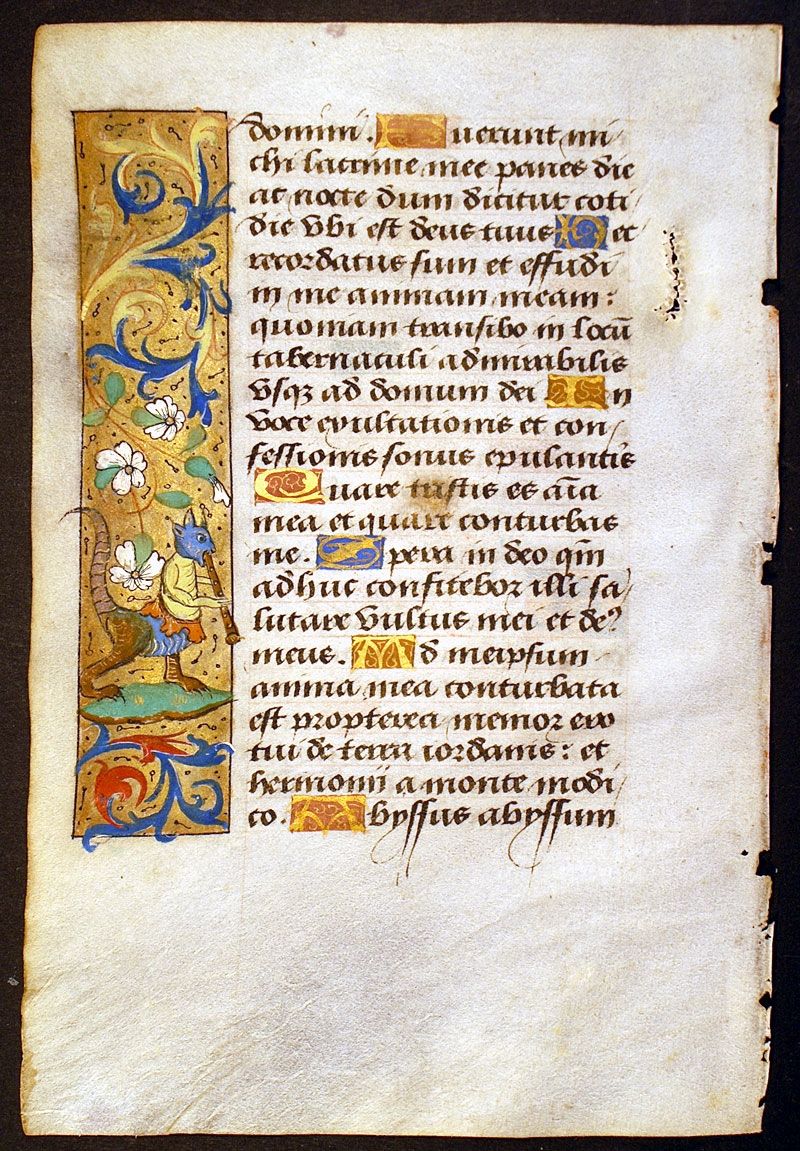 domini. Fuerunt mi
chi lacrime mee panes die
ac nocte dum dicitur coti
die vbi est deus tuus Hec
recordatus sum et effudi
in me animam meam:
quoniam transibo in locū
tabernaculi admirabilis
vsqꝫ ad domum dei In
voce exultationis et con
fessionis sonus epulantis
Quare tristis es aīa
mea et quare conturbas
me. Spera in deo qm̄
adhuc confitebor illi sa
lutare vultus mei et de9
meus. Ad meipsum
anima mea conturbata
est propterea memor ero
tui de terra iordanis: et
hermonii a monte modi
co. Abyssus abyssum